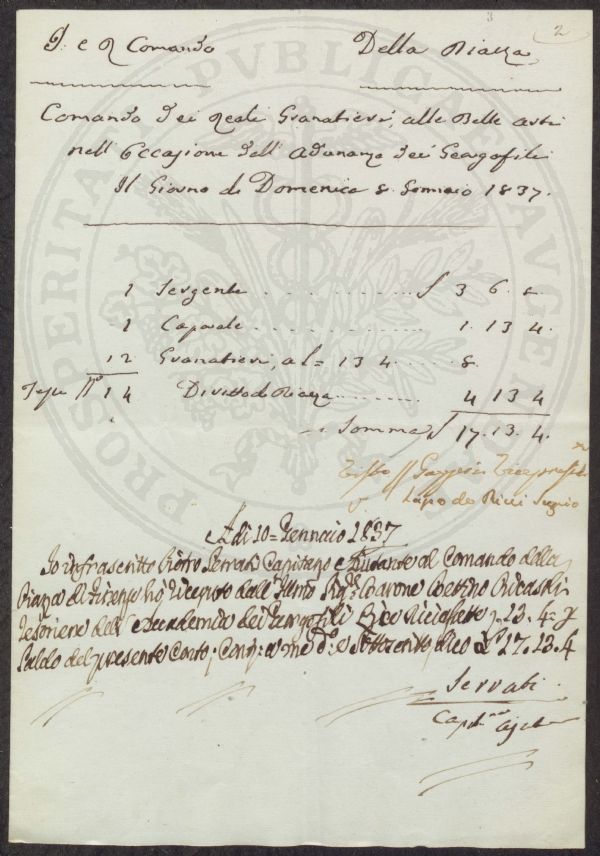 2
I. e R Comando Della Piazza
Comando dei Reali Granatieri, alle Belle arti
nell'Occasione dell'adunanza dei Georgofili
Il Giorno di Domenica 8. Gennaio 1837.
1 Sergente . . . . . . . . . . £ 3 6. 8
1 Caporale . . . . . . . . . . 1. 13 4.
12 Granatieri, al= 13 4 . . . . 8.
Teste N° 14 Diritto di Piazza . . . . . . 4 13 4
Somma £ 17. 13. 4.
Visto
Lapo de Ricci
Adi 10=Gennaio 1837
Io infrascritto Pietro Serrati Capitano e Aiutante al Comando della
Piazza di Firenze ho ricevuto dall' Illmo Sigre Barone Bettino Ricasoli
Tesoriere dell' Accademia dei Georgofili Lire Diciassette, 13. 4=
Saldo del presente Conto, £ 17. 13. 4
Serrati
Capno Ajte
PROSPERITATI PVBLICAE AVGENDAE